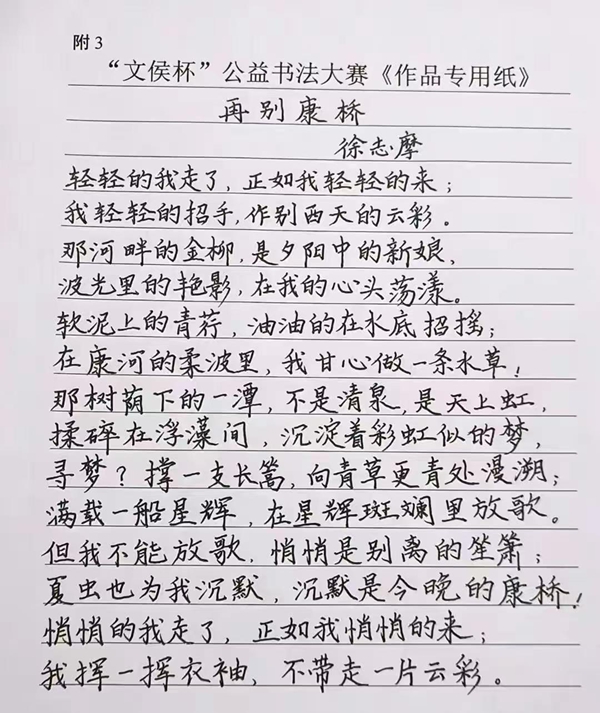 附3
“文侯杯”公益书法大赛《作品专用纸》
再别康桥
徐志摩
轻轻的我走了，正如我轻轻的来；
我轻轻的招手，作别西天的云彩。
那河畔的金柳，是夕阳中的新娘，
波光里的艳影，在我的心头荡漾。
软泥上的青荇，油油的在水底招摇；
在康河的柔波里，我甘心做一条水草！
那树荫下的一潭，不是清泉，是天上虹，
揉碎在浮藻间，沉淀着彩虹似的梦，
寻梦？撑一支长篙，向青草更青处漫溯；
满载一船星辉，在星辉斑斓里放歌。
但我不能放歌．悄悄是别离的笙箫；
夏虫也为我沉默，沉默是今晚的康桥！
悄悄的我走了，正如我悄悄的来；
我挥一挥衣袖，不带走一片云彩。